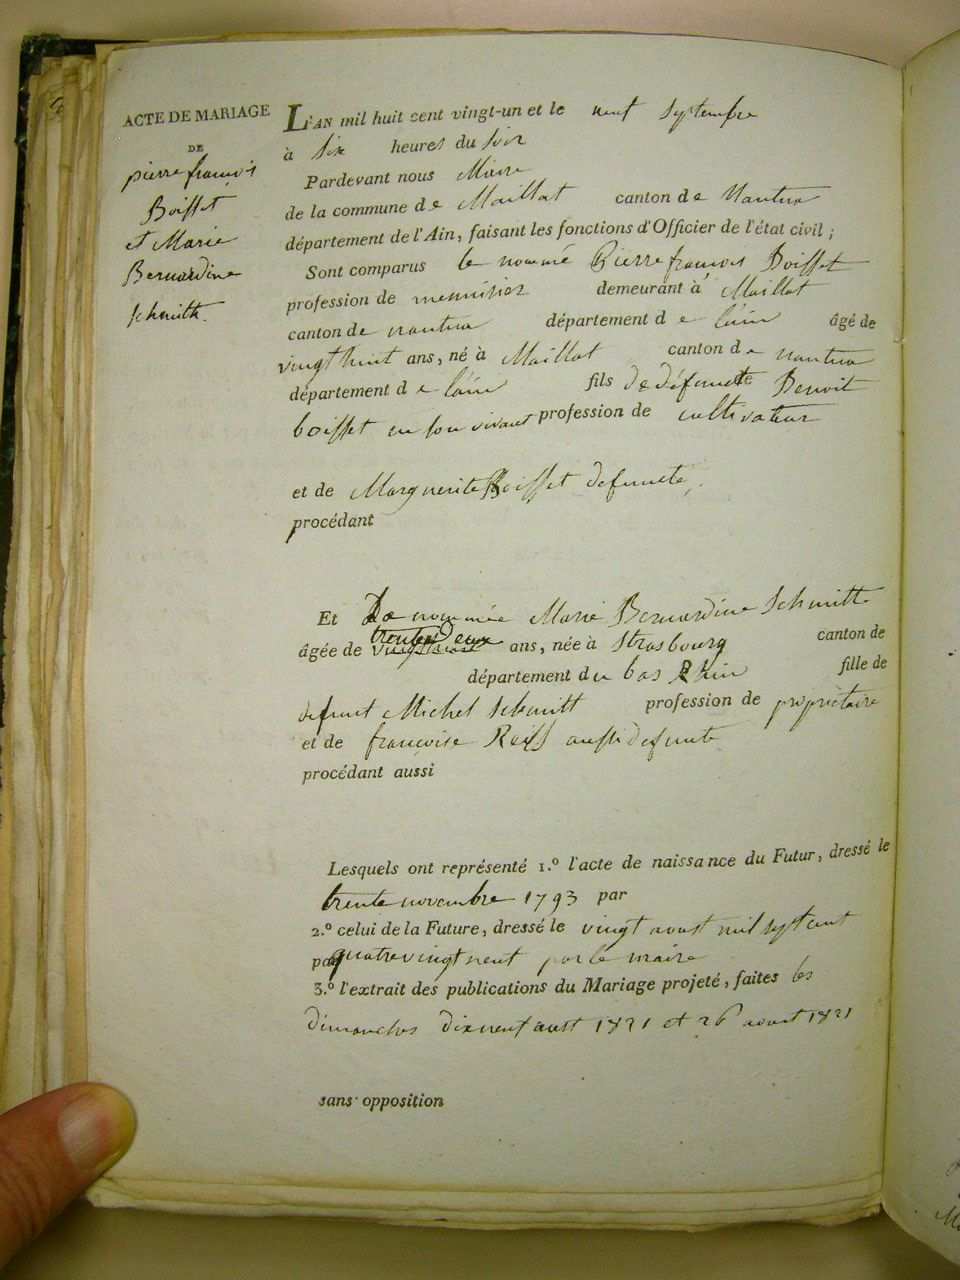 ACTE DE MARIAGE
DE
pierre françois
Boisset
et Marie
Bernardine
schmith.
L'AN mil huit cent vingt-un et le neuf septembre
à six heures du soir
Pardevant nous Maire
de la commune de Maillat canton de Nantua
département de l'Ain, faisant les fonctions d'Officier de l'état civil ;
Sont comparus le nommé Pierre françois Boisset
profession de menuisier demeurant à Maillat
canton de nantua département de l'ain âgé de
vingt huit ans, né à Maillat canton de nantua
département de l'ain fils de défunt Benoit
boisset en son vivant profession de cultivateur
et de Marguerite Boisset defunte.
procédant
Et La nommée Marie Bernardine Schmitt
âgée de trente deux ans, née à Strasbourg canton de
département du bas Rhin fille de
defunt Michel Schmitt profession de propriétaire
et de françoise Reiss aussi defunte
procédant aussi
Lesquels ont représenté 1.º l'acte de naissance du Futur, dressé le
trente novembre 1793 par
2.º celui de la Future, dressé le vingt aoust mil sept cent
par quatrevingt neuf par le maire
3.º l'extrait des publications du Mariage projeté, faites les
dimanches dixneuf aust 1821 et 26 aoust 1821
sans opposition